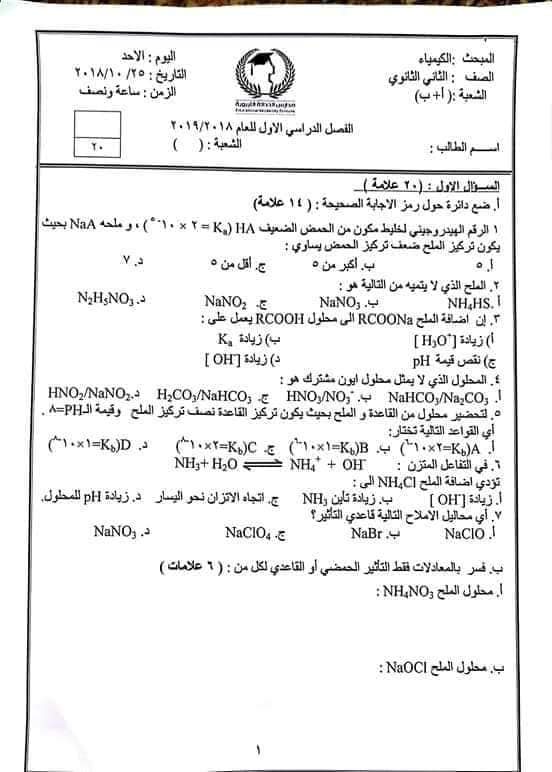 المبحث :الكيمياء
اليوم : الاحد
الصف : الثاني الثانوي
التاريخ : ٢٠١٨/١٠/٢٥
الشعبة :( أ+ ب)
الزمن : ساعة ونصف
الفصل الدراسي الاول للعام ٢٠١٩/٢٠١٨
اسم الطالب :
الشعبة : ( )
٢٠
السؤال الاول : (٢٠ علامة )
أ. ضع دائرة حول رمز الاجابة الصحيحة : ( ١٤ علامة)
١ الرقم الهيدروجيني لخليط مكون من الحمض الضعيف HA (Ka = ٢ × ١٠-٥) ، و ملحه NaA بحيث
يكون تركيز الملح ضعف تركيز الحمض يساوي :
أ. ٥ ب. أكبر من ٥ ج. أقل من ٥ د. ٧
٢. الملح الذي لا يتميه من التالية هو :
أ. NH4HS ب. NaNO3 ج. NaNO2 د. N2H5NO3
٣. إن اضافة الملح RCOONa الى محلول RCOOH يعمل على :
أ) زيادة [H3O+] ب) زيادة Ka
ج) نقص قيمة pH د) زيادة [OH-]
٤. المحلول الذي لا يمثل محلول ايون مشترك هو :
أ. NaHCO3/Na2CO3 ب. HNO3/NO3- ج. H2CO3/NaHCO3 د. HNO2/NaNO2
٥. لتحضير محلول من القاعدة و الملح بحيث يكون تركيز القاعدة نصف تركيز الملح وقيمة الـPH=٨
أي القواعد التالية تختار:
أ. A(Kb=٢×١٠-٦) ب. B(Kb=١×١٠-٦) ج. C(Kb=٢×١٠-٨) د. D(Kb=١×١٠-٨)
٦. في التفاعل المتزن : NH3+ H2O ⇌ NH4+ + OH-
تؤدي اضافة الملح NH4Cl الى :
أ. زيادة [OH-] ب. زيادة تأين NH3 ج. اتجاه الاتزان نحو اليسار د. زيادة pH للمحلول.
٧. أي محاليل الاملاح التالية قاعدي التأثير؟
أ. NaClO ب. NaBr ج. NaClO4 د. NaNO3
ب. فسر بالمعادلات فقط التأثير الحمضي أو القاعدي لكل من : ( ٦ علامات )
أ. محلول الملح NH4NO3 :
ب. محلول الملح NaOCl :
١